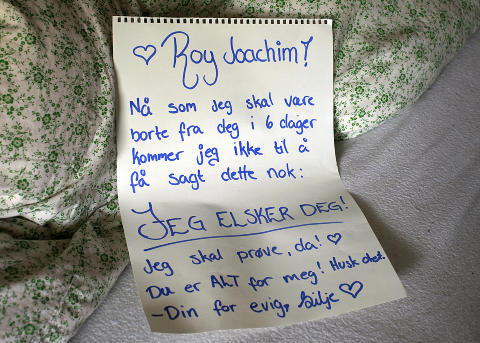 ♡ Roy Joachim!
Nå som jeg skal være
borte fra deg i 6 dager
kommer jeg ikke til å
få sagt dette nok:
JEG ELSKER DEG!
Jeg skal prøve, da! ♡
Du er ALT for meg! Husk det.
-Din for evig, Silje ♡